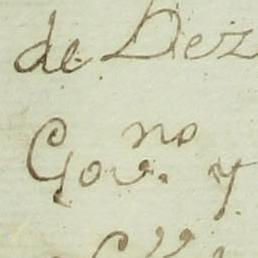 de Dez
Gov.no y